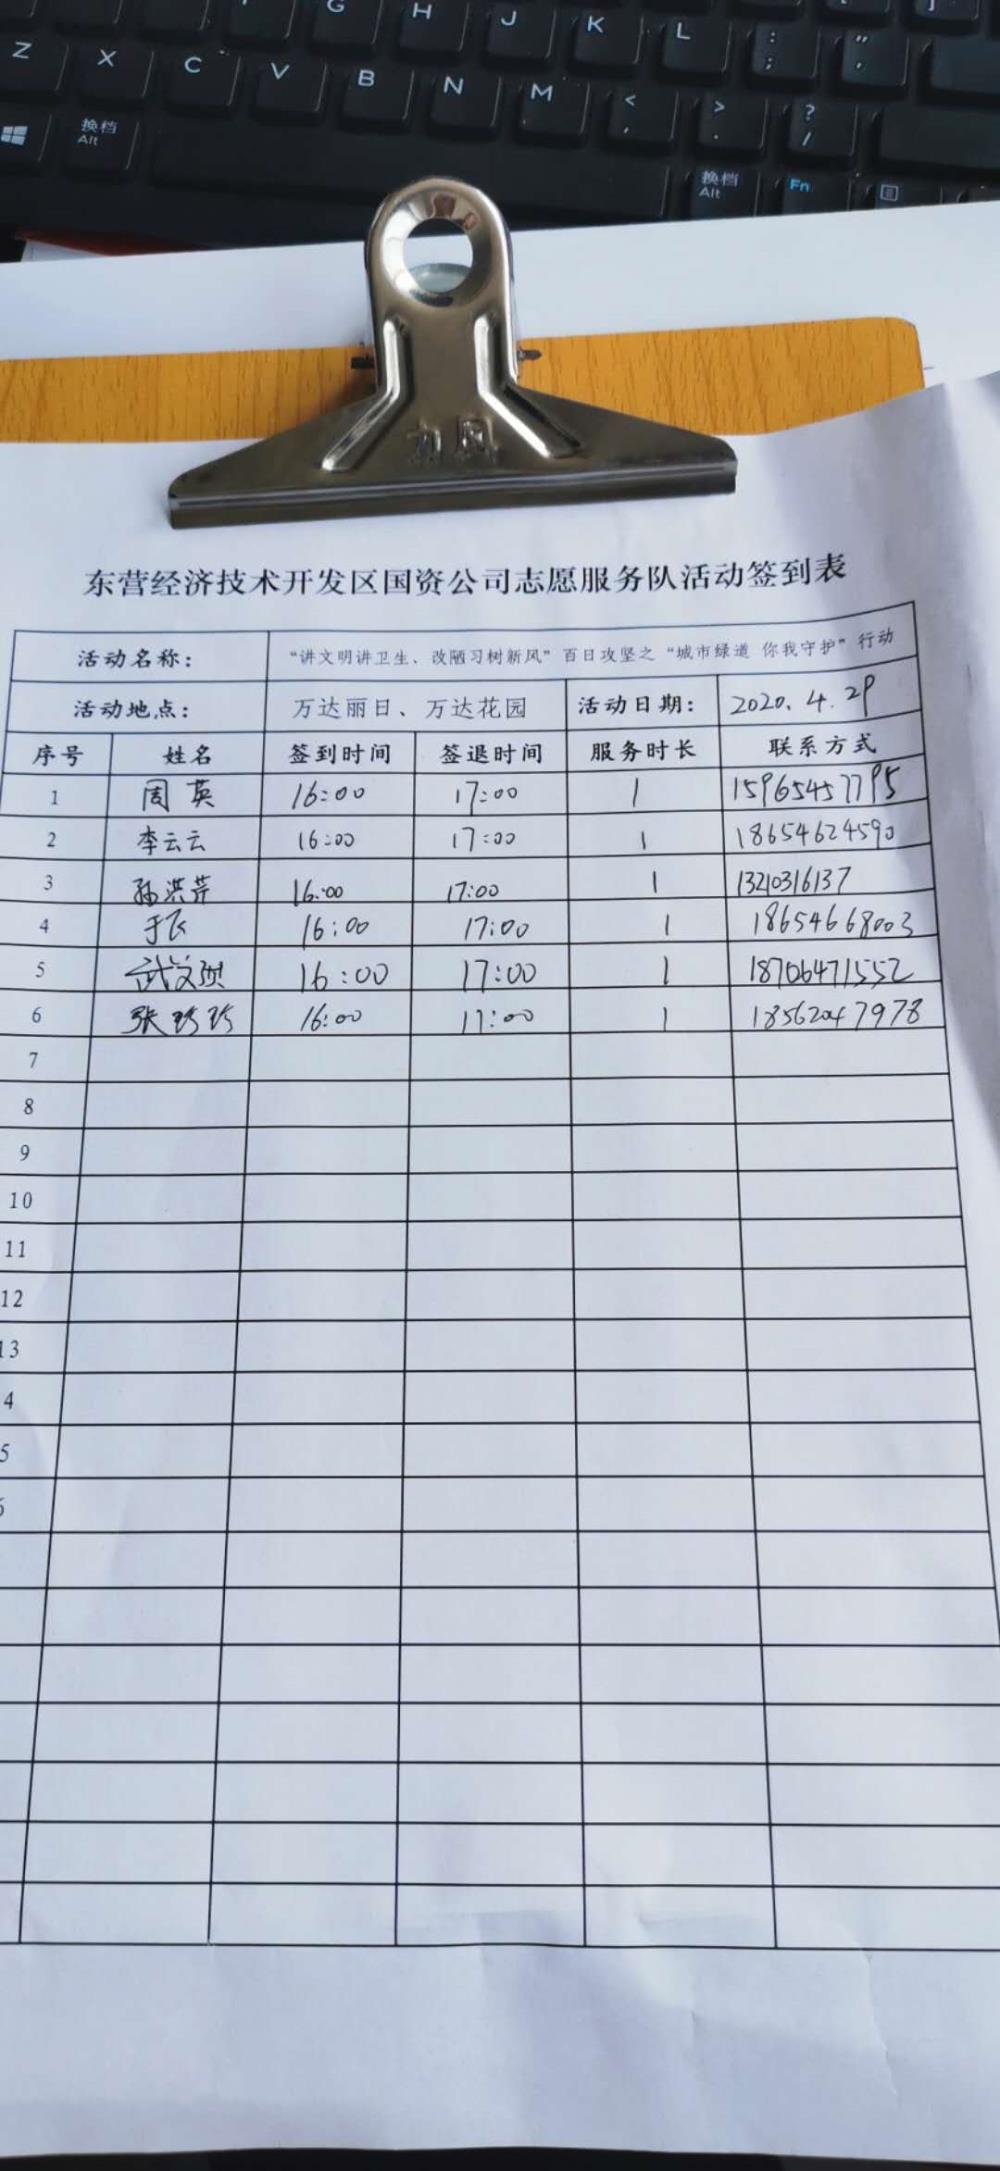 G H J K L : ;
Z X C V B N M < , > . ? /
换档 Alt
换档 Alt Fn
力风
东营经济技术开发区国资公司志愿服务队活动签到表
活动名称： “讲文明讲卫生、改陋习树新风”百日攻坚之“城市绿道 你我守护”行动
活动地点： 万达丽日、万达花园 活动日期： 2020.4.29
序号 姓名 签到时间 签退时间 服务时长 联系方式
1 周英 16:00 17:00 1 15965457795
2 李云云 16:00 17:00 1 18654624590
3 孙洪芹 16:00 17:00 1 13210316137
4 于飞 16:00 17:00 1 18654668003
5 武文 16:00 17:00 1 18706471552
6 张珍珍 16:00 17:00 1 18562047978
7
8
9
10
11
12
13
4
5